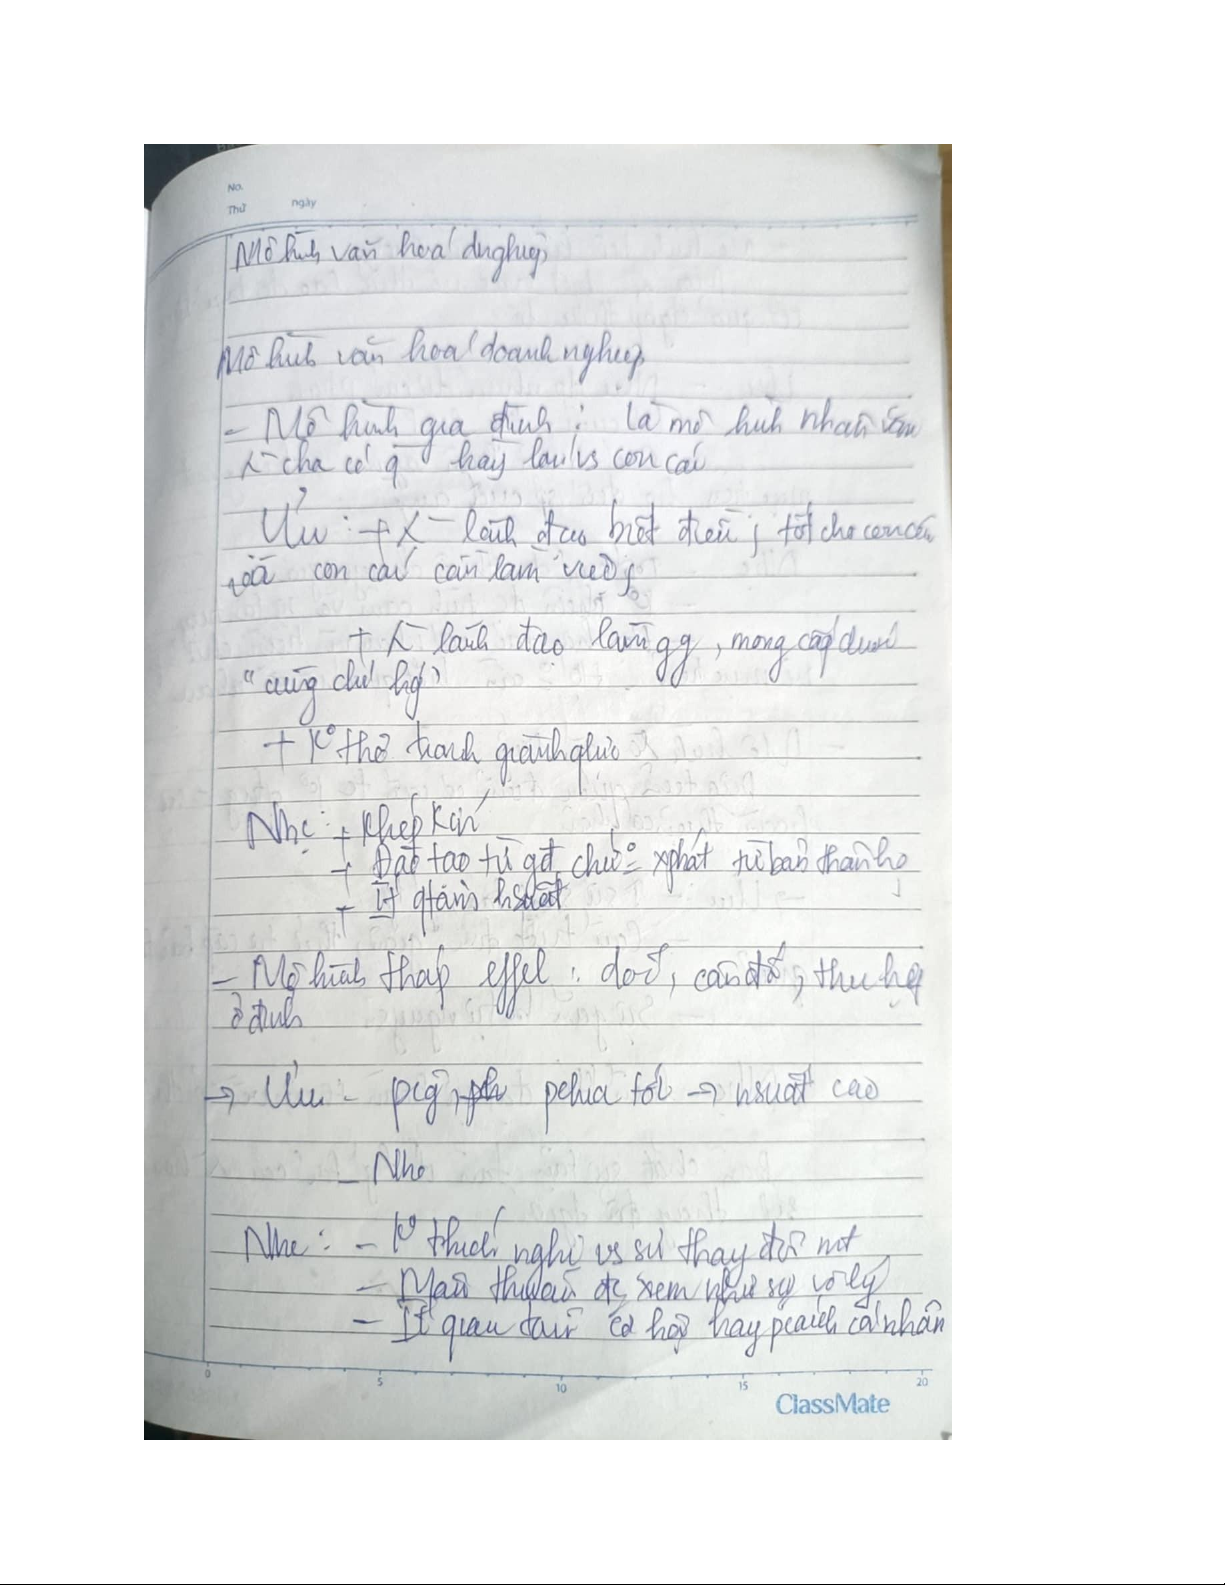 No.
Thứ ngày
Mô hình văn hoá dnghiệp
Mô hình văn hoá doanh nghiệp
- Mô hình gia đình : là mô hình nhân văn
cha có q hay lau vs con cái
Ưu : + lãnh đạo biết điều j tốt cho con cái
và con cái cần làm việc j
+ lãnh đạo làm gg , mong cấp dưới
" cùng chí hg "
+ K° thể tranh giành
Nhc : + Khép kín
+ Đào tạo từ gđ, chứ = xphát từ bản thân họ
+ Ít qtâm hsuất
- Mô hình tháp effel : dốc, cân đố, thu hẹp
ở đỉnh
→ Ưu - pcg, pchia tốt → nsuất cao
- Nhc
Nhc : - K° thích nghi vs sự thay đổi mt
- Mâu thuẫn đc xem như sự vô lý
- Ít quan tâm cơ hội hay pcách cá nhân
0 5 10 15 20
ClassMate